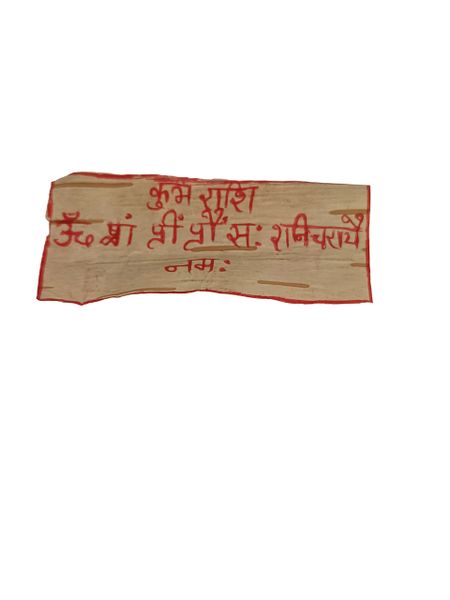 कुंभ राशि
ॐ प्रां प्रीं प्रौं सः शनिचरायै
नमः